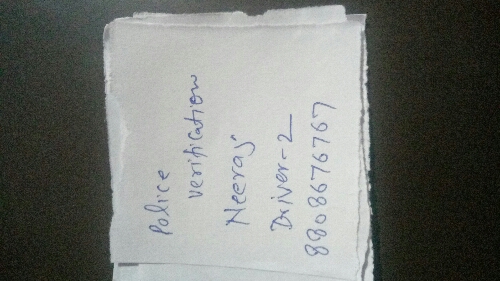 Police
verification
Neeraj
Driver-2
8808676767